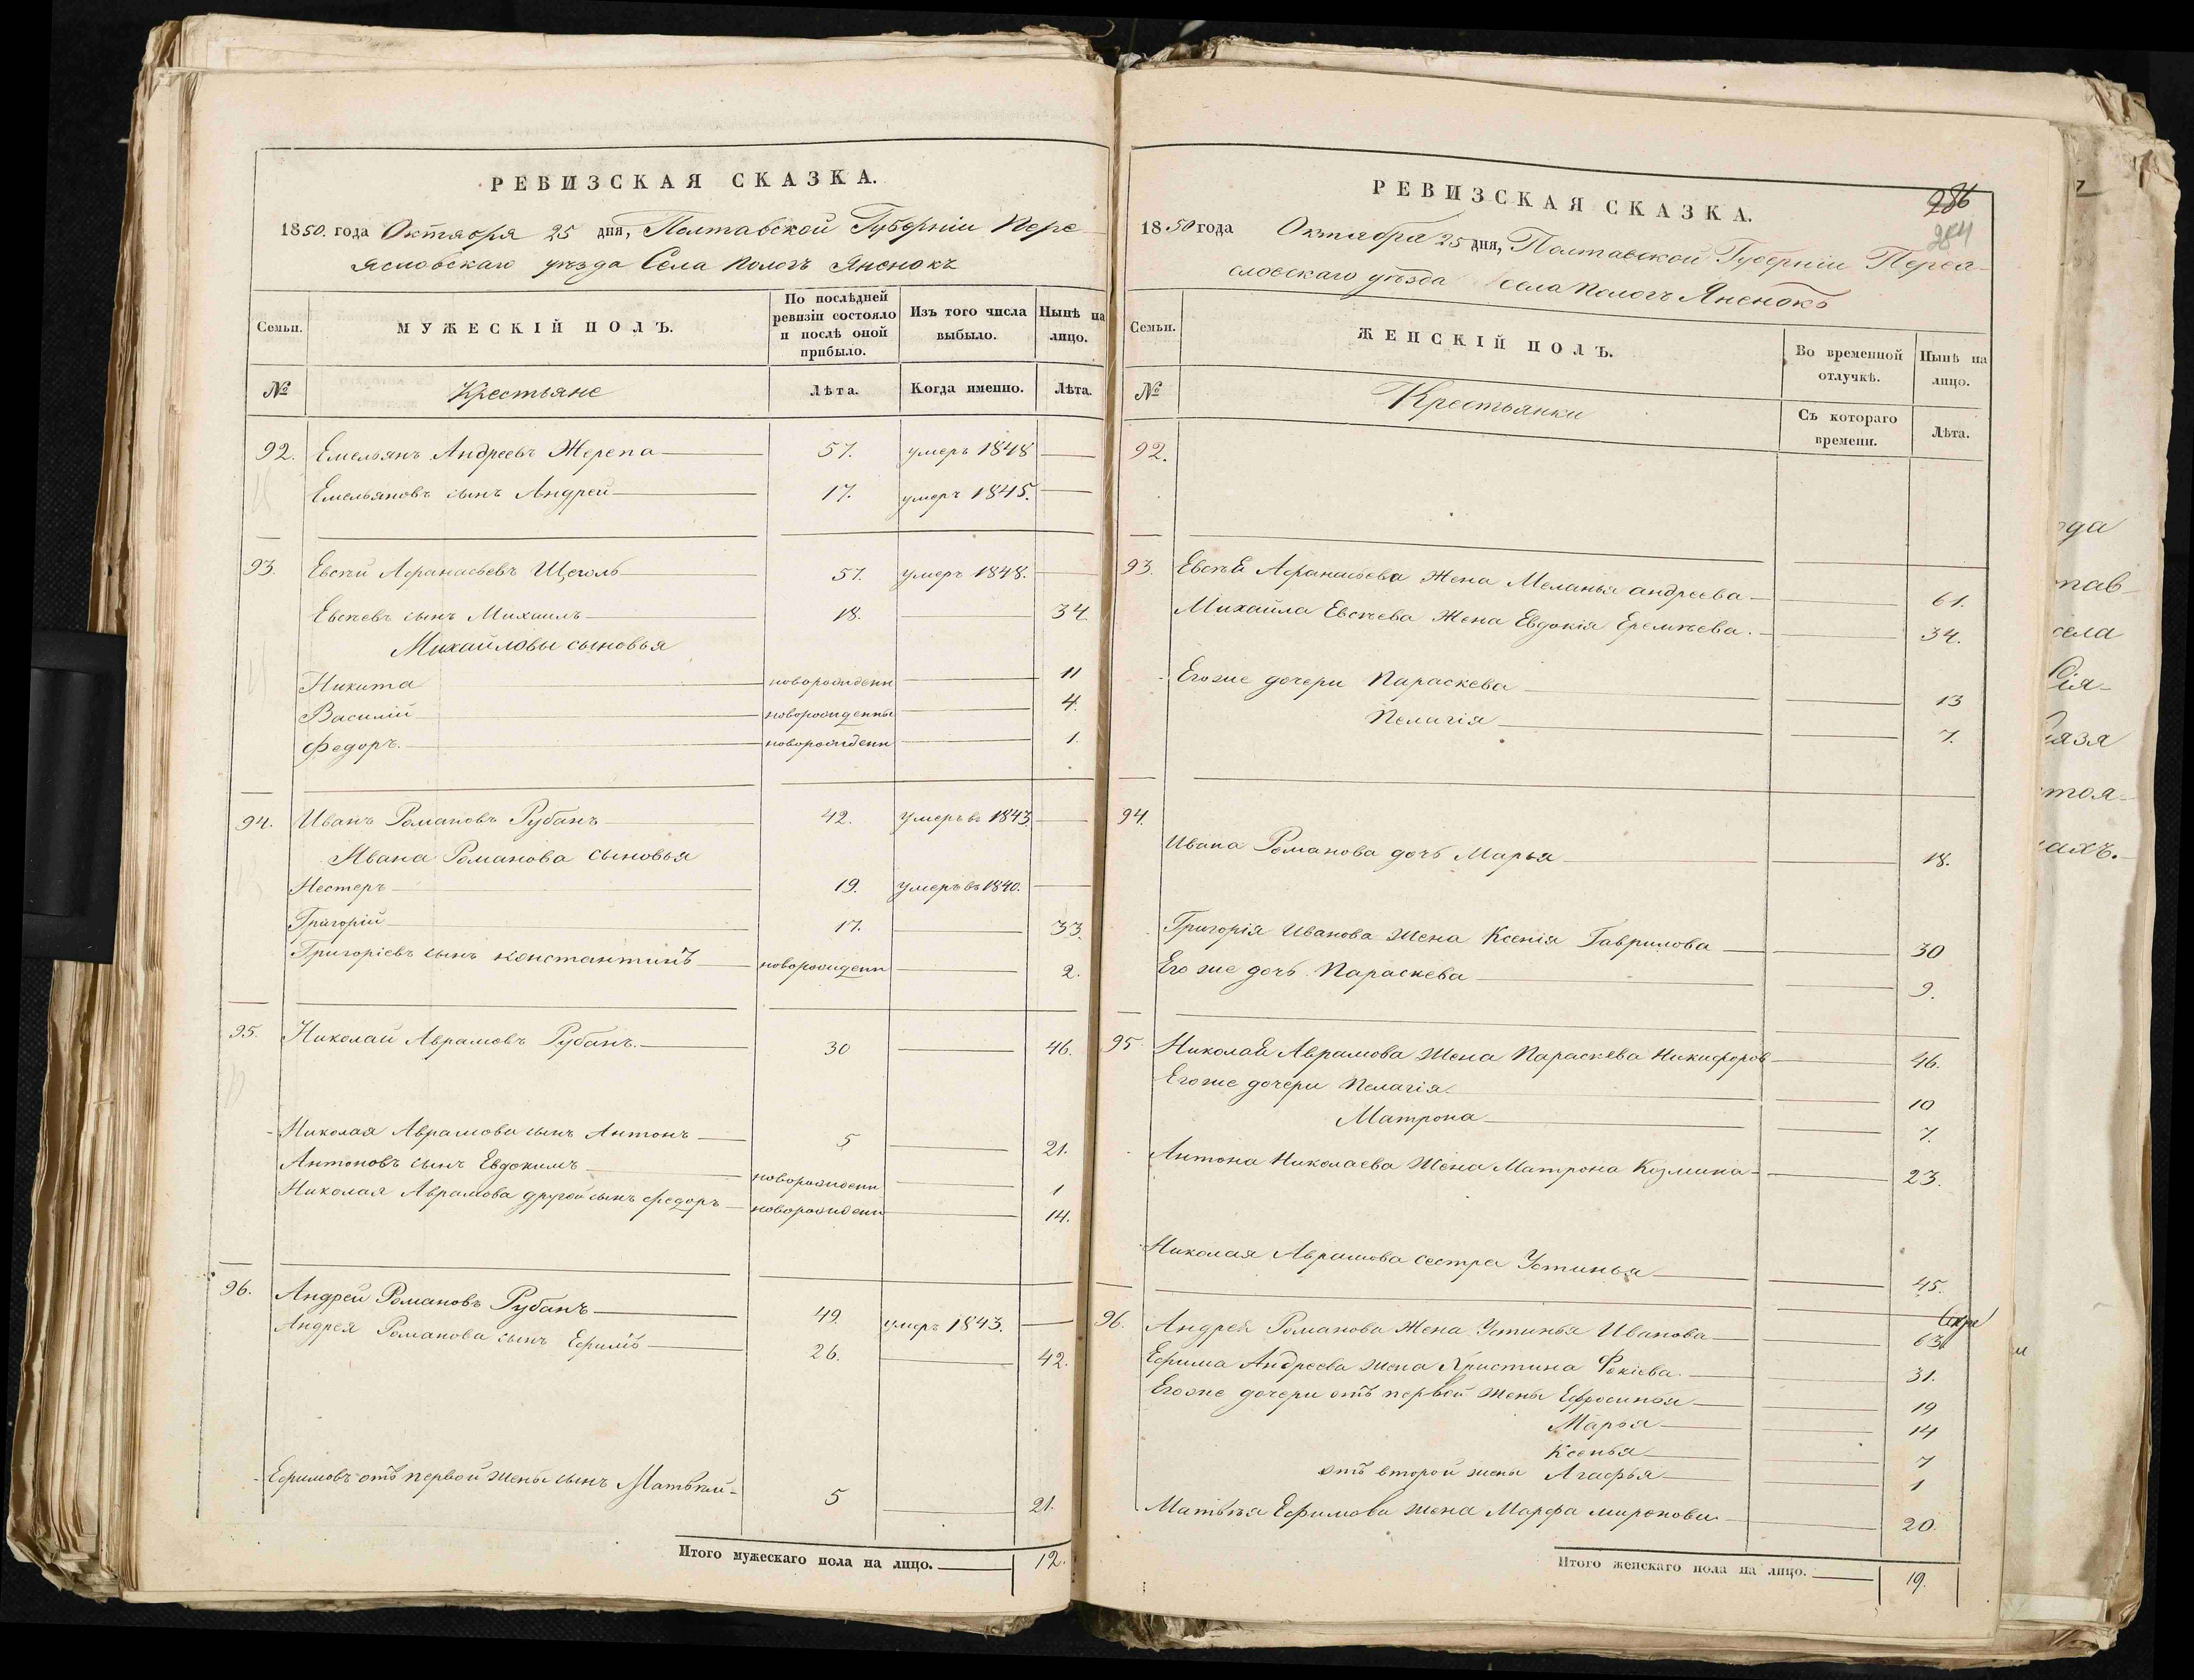 РЕВИЗСКАЯ СКАЗКА.
1850. года Октября 25 дня, Полтавской Губерніи Пере-
яславскаго уѣзда Села Пологъ Яненокъ
Семьи. МУЖЕСКІЙ ПОЛЪ. По послѣдней ревизіи состояло и послѣ оной прибыло. Изъ того числа выбыло. Нынѣ на лицо.
№ Крестьяне Лѣта. Когда именно. Лѣта.
92. Емельянъ Андреевъ Жерепа 57. умеръ 1848
Емельяновъ сынъ Андрей 17. умеръ 1845.
93. Евсѣй Афанасьевъ Щеголь 57. умеръ 1848.
Евсѣевъ сынъ Михаилъ 18. 34
Михайловы сыновья
Никита новорожденн 11
Василій новорожденны 4.
Федоръ. новорожденн 1.
94. Иванъ Романовъ Рубанъ 42. умеръ въ 1843.
Ивана Романова сыновья
Нестеръ 19. умеръ въ 1840.
Григорій 17. 33.
Григоріевъ сынъ Константинъ новорожденн 2.
95. Николай Аврамовъ Рубанъ. 30 46.
Николая Аврамова сынъ Антонъ 5 21.
Антоновъ сынъ Евдокимъ новорожденн 1
Николая Аврамова другой сынъ Федоръ новорожденн 14.
96. Андрей Романовъ Рубанъ 49. умеръ 1843.
Андрея Романова сынъ Ефимъ 26. 42.
Ефимовъ отъ первой жены сынъ Матвѣй 5 21.
Итого мужескаго пола на лицо. 12.
286
284
РЕВИЗСКАЯ СКАЗКА.
1850 года Октября 25 дня, Полтавской Губерніи Перея-
славскаго уѣзда села Пологъ Яненокъ
Семьи. ЖЕНСКІЙ ПОЛЪ. Во временной отлучкѣ. Нынѣ на лицо.
№ Крестьянки Съ котораго времени. Лѣта.
92.
93. Евсѣя Афанасьева жена Меланья андреева 61.
Михайла Евсѣева жена Евдокія Еремѣева. 34.
Егоже дочери Параскева 13
Пелагія 7.
94.
Ивана Романова дочь Марья 18.
Григорія Иванова жена Ксенія Гаврилова 30
Его же дочь Параскева 9.
95. Николая Аврамова жена Параскева Никифоров 46.
Егоже дочери Пелагія 10
Матрона 7.
Антона Николаева жена Матрона Козмина 23.
Николая Аврамова сестра Устинья 45.
96. Андрея Романова жена Устинья Иванова 63
Ефима Андреева жена Христина Фокіева. 31.
Егоже дочери отъ первой жены Ефросинья 19
Марья 14
Ксенья 7
отъ второй жены Агафья 1
Матвѣя Ефимова жена Марфа миронова 20.
Итого женскаго пола на лицо. 19.